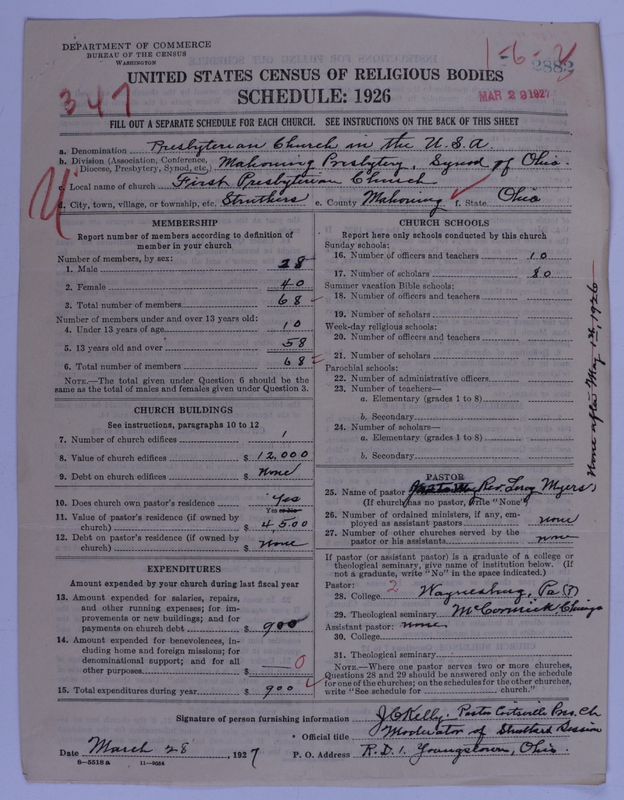 DEPARTMENT OF COMMERCE
BUREAU OF THE CENSUS
WASHINGTON
1-6-
2882
347
MAR 29 1927
UNITED STATES CENSUS OF RELIGIOUS BODIES
SCHEDULE: 1926
FILL OUT A SEPARATE SCHEDULE FOR EACH CHURCH. SEE INSTRUCTIONS ON THE BACK OF THIS SHEET
a. Denomination Presbyterian Church in the U.S.A.
b. Division (Association, Conference, Diocese, Presbytery, Synod, etc.) Mahoning Presbytery, Synod of Ohio.
c. Local name of church First Presbyterian Church
d. City, town, village, or township, etc. Struthers e. County Mahoning f. State Ohio
MEMBERSHIP
Report number of members according to definition of
member in your church
Number of members, by sex:
1. Male 28
2. Female 40
3. Total number of members 68
Number of members under and over 13 years old:
4. Under 13 years of age 10
5. 13 years old and over 58
6. Total number of members 68
NOTE.—The total given under Question 6 should be the
same as the total of males and females given under Question 3.
CHURCH BUILDINGS
See instructions, paragraphs 10 to 12
7. Number of church edifices 1
8. Value of church edifices $ 12,000
9. Debt on church edifices $ None
10. Does church own pastor's residence Yes
Yes or No
11. Value of pastor's residence (if owned by
church) $ 4500
12. Debt on pastor's residence (if owned by
church) $ None
EXPENDITURES
Amount expended by your church during last fiscal year
13. Amount expended for salaries, repairs,
and other running expenses; for im-
provements or new buildings; and for
payments on church debt $ 900
14. Amount expended for benevolences, in-
cluding home and foreign missions; for
denominational support; and for all
other purposes $ 0
15. Total expenditures during year $ 900
CHURCH SCHOOLS
Report here only schools conducted by this church
Sunday schools:
16. Number of officers and teachers 10
17. Number of scholars 80
Summer vacation Bible schools:
18. Number of officers and teachers
19. Number of scholars
Week-day religious schools:
20. Number of officers and teachers
21. Number of scholars
Parochial schools:
22. Number of administrative officers
23. Number of teachers—
a. Elementary (grades 1 to 8)
b. Secondary
24. Number of scholars—
a. Elementary (grades 1 to 8)
b. Secondary
None after May 1st, 1926
PASTOR
25. Name of pastor Rev. Leroy Myers
(If church has no pastor, write "None")
26. Number of ordained ministers, if any, em-
ployed as assistant pastors none
27. Number of other churches served by the
pastor or his assistants none
If pastor (or assistant pastor) is a graduate of a college or
theological seminary, give name of institution below. (If
not a graduate, write "No" in the space indicated.)
Pastor:
28. College 2 Waynesburg, Pa (?)
29. Theological seminary McCormick, Chicago
Assistant pastor: none
30. College
31. Theological seminary
NOTE.—Where one pastor serves two or more churches,
Questions 28 and 29 should be answered only on the schedule
for one of the churches; on the schedules for the other churches,
write "See schedule for church."
Signature of person furnishing information J C Kelly. Pastor Coitsville Pres. Ch
Official title Moderator of Struthers Session
Date March 28, 1927 P. O. Address R.D. 1. Youngstown, Ohio.
8-5518a 11-9054